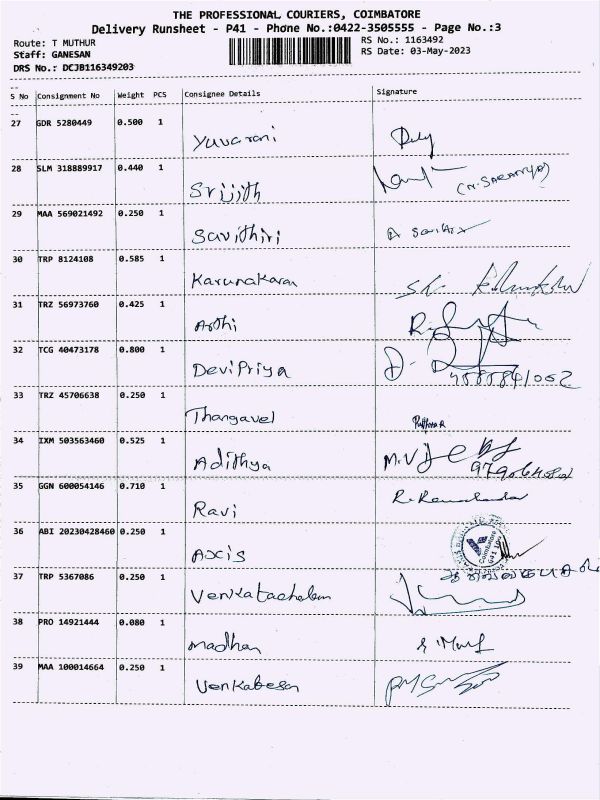 THE PROFESSIONAL COURIERS, COIMBATORE
Delivery Runsheet - P41 - Phone No.:0422-3505555 - Page No.:3
Route: T MUTHUR
RS No.: 1163492
Staff: GANESAN
RS Date: 03-May-2023
DRS No.: DCJB116349203
S No Consignment No Weight PCS Consignee Details Signature
27 GDR 5280449 0.500 1
Yuvarani
28 SLM 318889917 0.440 1
Srijith (N.SARANYA)
29 MAA 569021492 0.250 1
Savithiri
30 TRP 8124108 0.585 1
Karunakaran
31 TRZ 56973760 0.425 1
Arthi
32 TCG 40473178 0.800 1
DeviPriya
33 TRZ 45706638 0.250 1
Thangavel
34 IXM 503563460 0.525 1
Adithya M.V
35 GGN 600054146 0.710 1
Ravi
36 ABI 20230428460 0.250 1
Axis
37 TRP 5367086 0.250 1
Venkatachalam
38 PRO 14921444 0.080 1
Madhan
39 MAA 100014664 0.250 1
Venkatesan